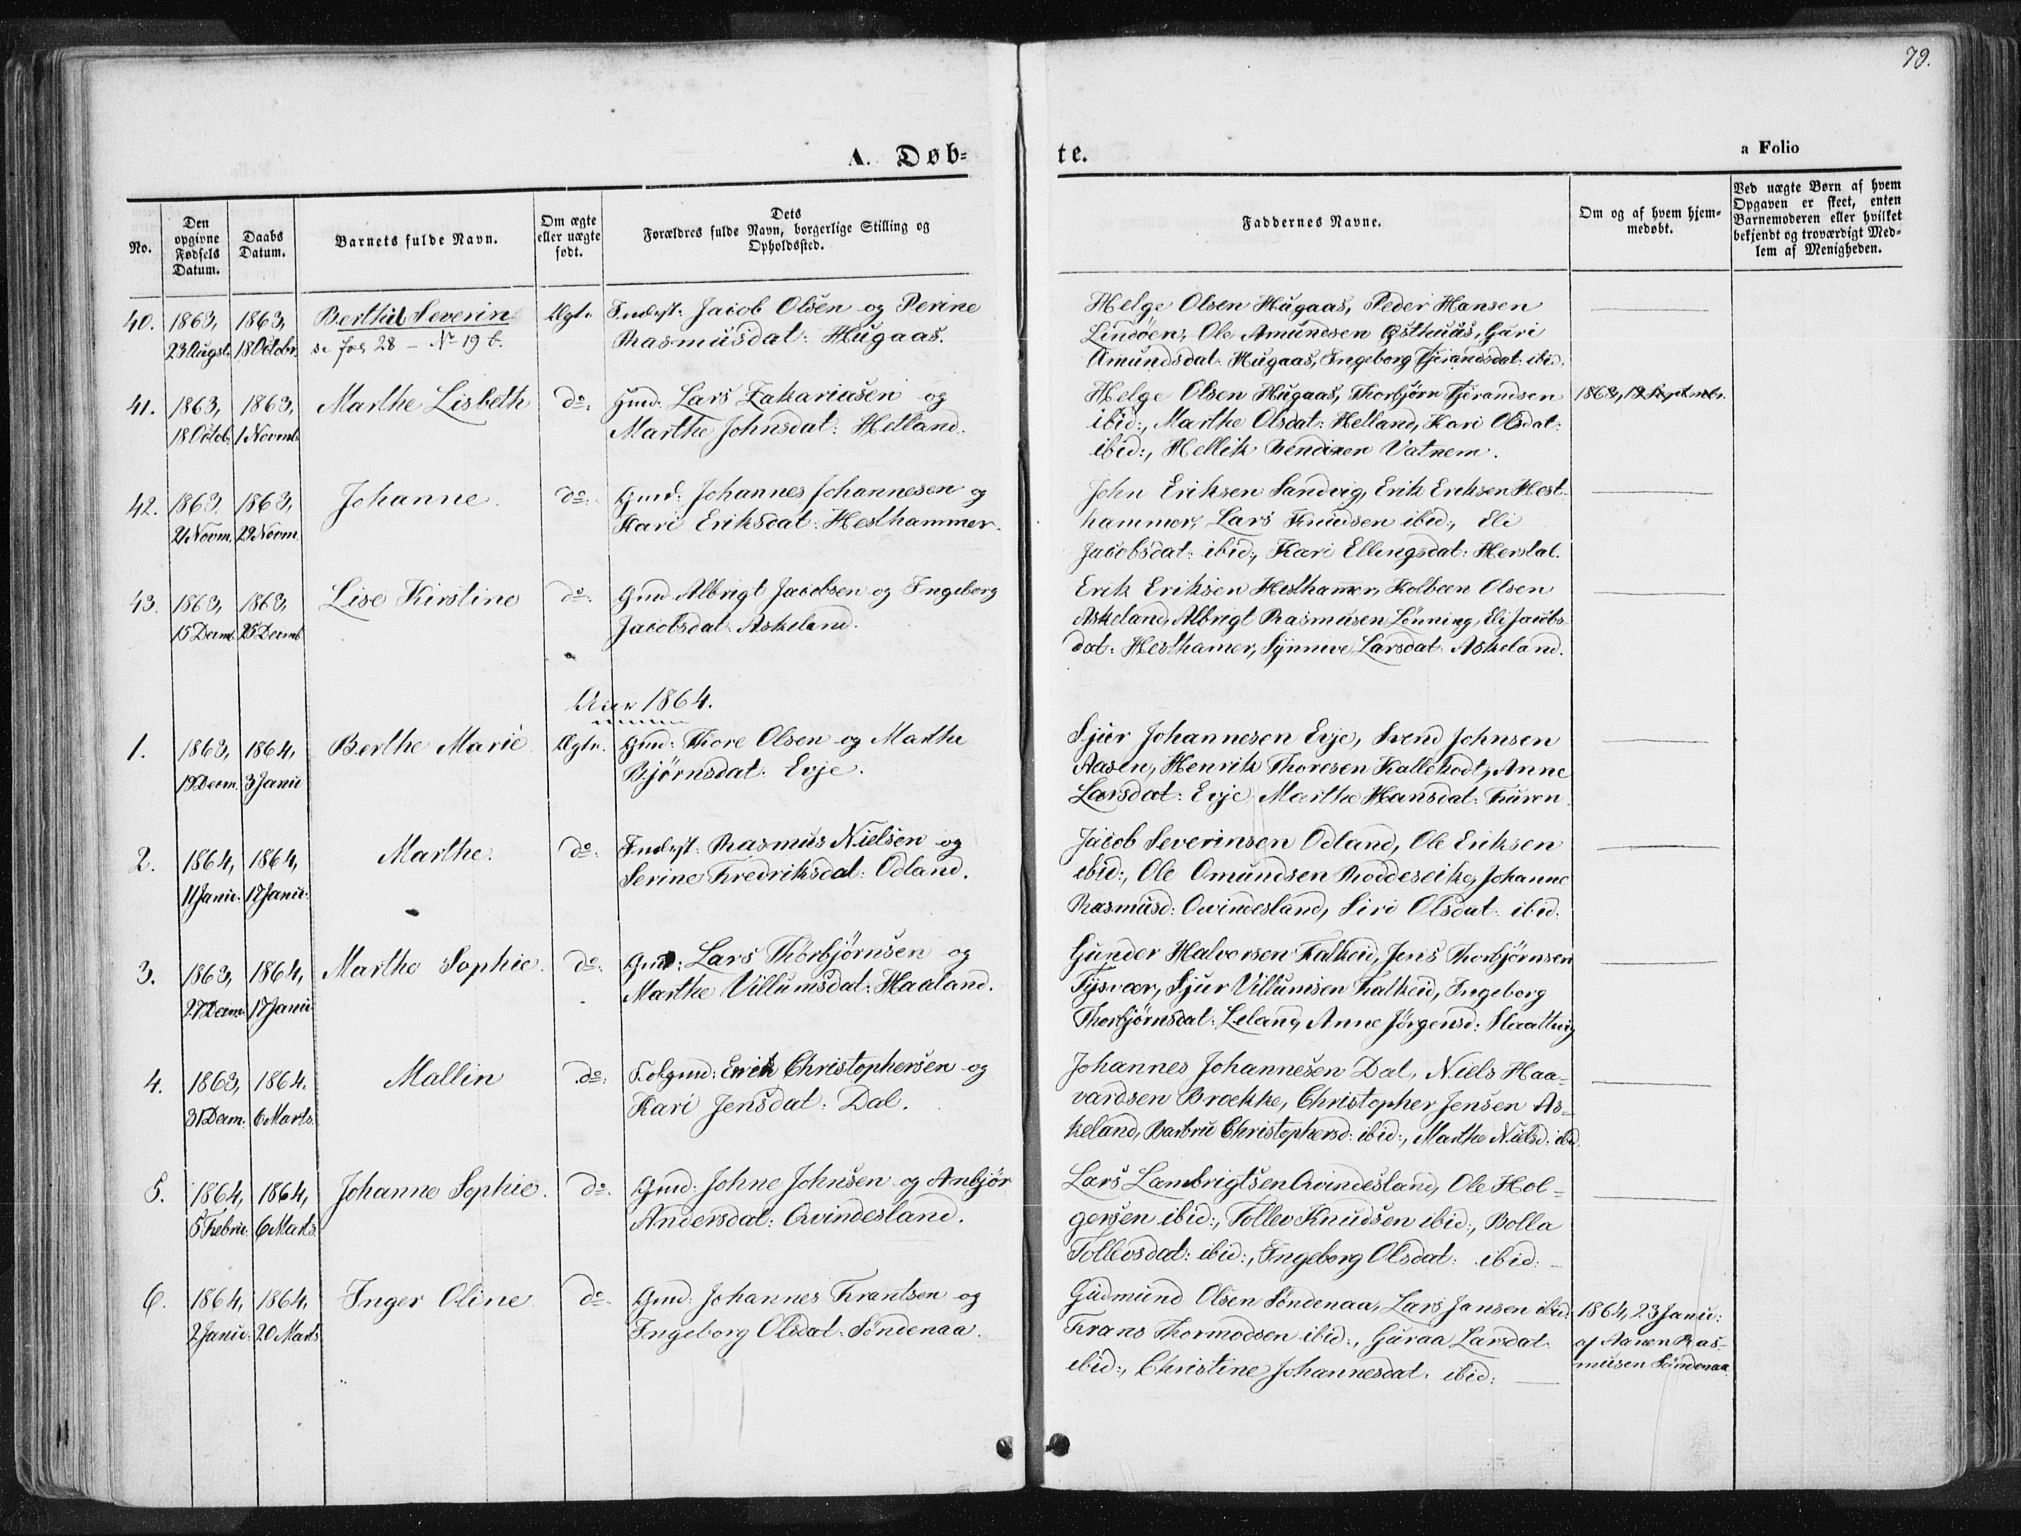 79.
A. Døb-
te.
a Folio
No.
Den opgivne Fødsels Datum.
Daabs Datum.
Barnets fulde Navn.
Om ægte eller uægte født.
Dets Forældres fulde Navn, borgerlige Stilling og Opholdssted.
Faddernes Navne.
Om og af hvem hjem-medøbt.
Ved uægte Børn af hvem Opgaven er skeet, enten Barnemoderen eller hvilket bekjendt og troværdigt Med-lem af Menigheden.
40. 1863, 1863, Berthil Severin Ægte. Inderst: Jacob Olsen og Perine
23 Augst. 18 Octobr. se fol 28 – No 19 b. Rasmusdat: Hugaas.
Helge Olsen Hugaas, Peder Hansen
Lindøen, Ole Amundsen Østhuus, Guri
Amundsdat: Hugaas, Ingeborg Tjerandsdat: ibid.
41. 1863, 1863, Marthe Lisbeth do. Gmd: Lars Zakariasen og
18 Octob. 1 Novmb. Marthe Johnsdat: Helland.
Helge Olsen Hugaas, Thorbjørn Tjerandsen
ibid:, Marthe Olsdat: Helland, Kari Olsdat:
ibid:, Hellik Bendixen Vatnem.
42. 1863, 1863, Johanne. do. Gmd: Johannes Johannesen og
21 Novm. 29 Novm. Kari Eriksdat: Hesthammer.
John Eriksen Sandvig, Erik Eriksen Hest-
hammer, Lars Knudsen ibid:, Eli
Jacobsdat: ibid:, Kari Ellingsdat: Herstal.
43. 1863, 1863, Lise Kirstine do. Gmd Albrigt Jacobsen og Ingeborg
15 Decmb. 25 Decmb. Jacobsdat: Askeland.
Erik Eriksen Hesthammer, Kolbeen Olsen
Askeland, Albrigt Rasmusen Lønning, Eli Jacobs-
dat: Hesthamer, Synneve Larsdat: Askeland.
Aar 1864.
1. 1863, 1864, Berthe Marie Ægte. Gmd: Thore Olsen og Marthe
19 Decm. 3 Janu Bjørnsdat: Evje.
Sjur Johannesen Evje, Svend Johnsen
Aasen, Henrik Thoresen Kallekodt, Anne
Larsdat: Evje Marthe Hansdat:
2. 1864, 1864, Marthe. do. Inderst: Rasmus Nielsen og
11 Janu: 17 Janu: Serine Fredriksdat: Odland.
Jacob Severinsen Odland, Ole Eriksen
ibid:, Ole Omundsen Roddeseike, Johanne
Rasmusd: Qvindesland, Siri Olsdat: ibid.
3. 1863, 1864, Marthe Sophie. do. Gmd: Lars Thorbjørnsen og
27 Decm. 17 Janu: Marthe Villumsdat: Haaland.
Gunder Halvorsen Falkeid, Jens Thorbjørnsen
Tysvær, Sjur Villumsen Falkeid, Ingeborg
Thorbjørnsdat: Leland, Anne Jørgensd: Slaattvig
4. 1863, 1864. Mallin do. Folgmd: Erik Christophersen og
31 Decm. 6 Marts. Kari Jensdat: Dal.
Johannes Johannesen Dal, Niels Haa-
vardsen Brække, Christopher Jensen As-
keland, Barbru Christophersd: ibid:, Marthe Nielsd: ibd.
5. 1864, 1864, Johanne Sophie. do. Gmd: Johne Johnsen og Anbjør
5 Febru: 6 Marts. Andersdat: Qvindesland.
Lars Lambrigtsen Qvindesland, Ole Hol-
gersen ibid:, Tollev Knudsen ibid:, Bolla
Tollevsdat: ibid:, Ingeborg Olsdat: ibid:
6. 1864, 1864, Inger Oline do. Gmd: Johannes Frantsen og
2 Janu: 20 Marts Ingeborg Olsdat: Søndenaa.
Gudmund Olsen Søndenaa, Lars Jansen ibid:
Frans Thormodsen ibid:, Guraa Larsdat
ibid:, Christine Johannesdat: ibid:
1864, 23 Janu:
af Aanen Ras-
musen Søndenaa